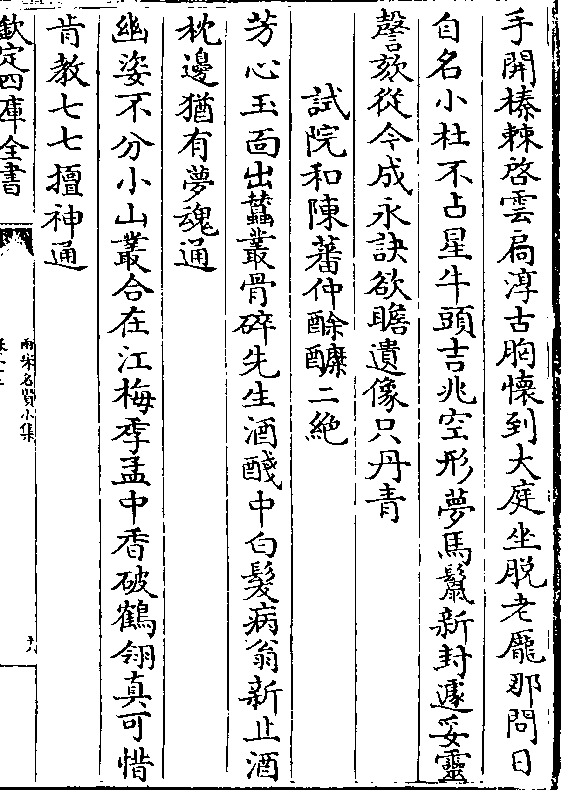 手開榛棘啓雲扃淳古胸懷到大庭坐脱老龎那問日
自名小杜不占星牛頭吉兆空形夢馬鬛新封遽妥靈
謦欬從今成永訣欲瞻遺像只丹青
試院和陳蕃仲酴醿二絶
芳心玉面出蠶叢骨碎先生酒醆中白髮病翁新止酒
枕邊猶有夢魂通
幽姿不分小山叢合在江梅季孟中香破鶴翎真可惜
肯教七七擅神通
欽定四庫全書
兩宋名賢小集
九